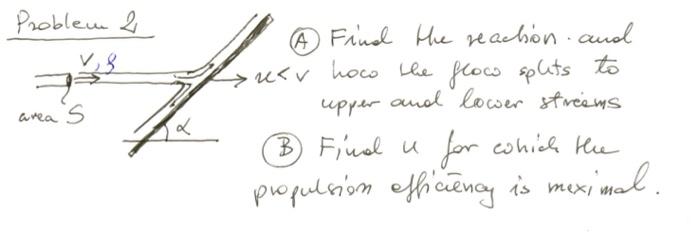 Problem 2
V, ρ
area S
α
u < v
Ⓐ Find the reaction and
how the flow splits to
upper and lower streams
Ⓑ Find u for which the
propulsion efficiency is maximal.